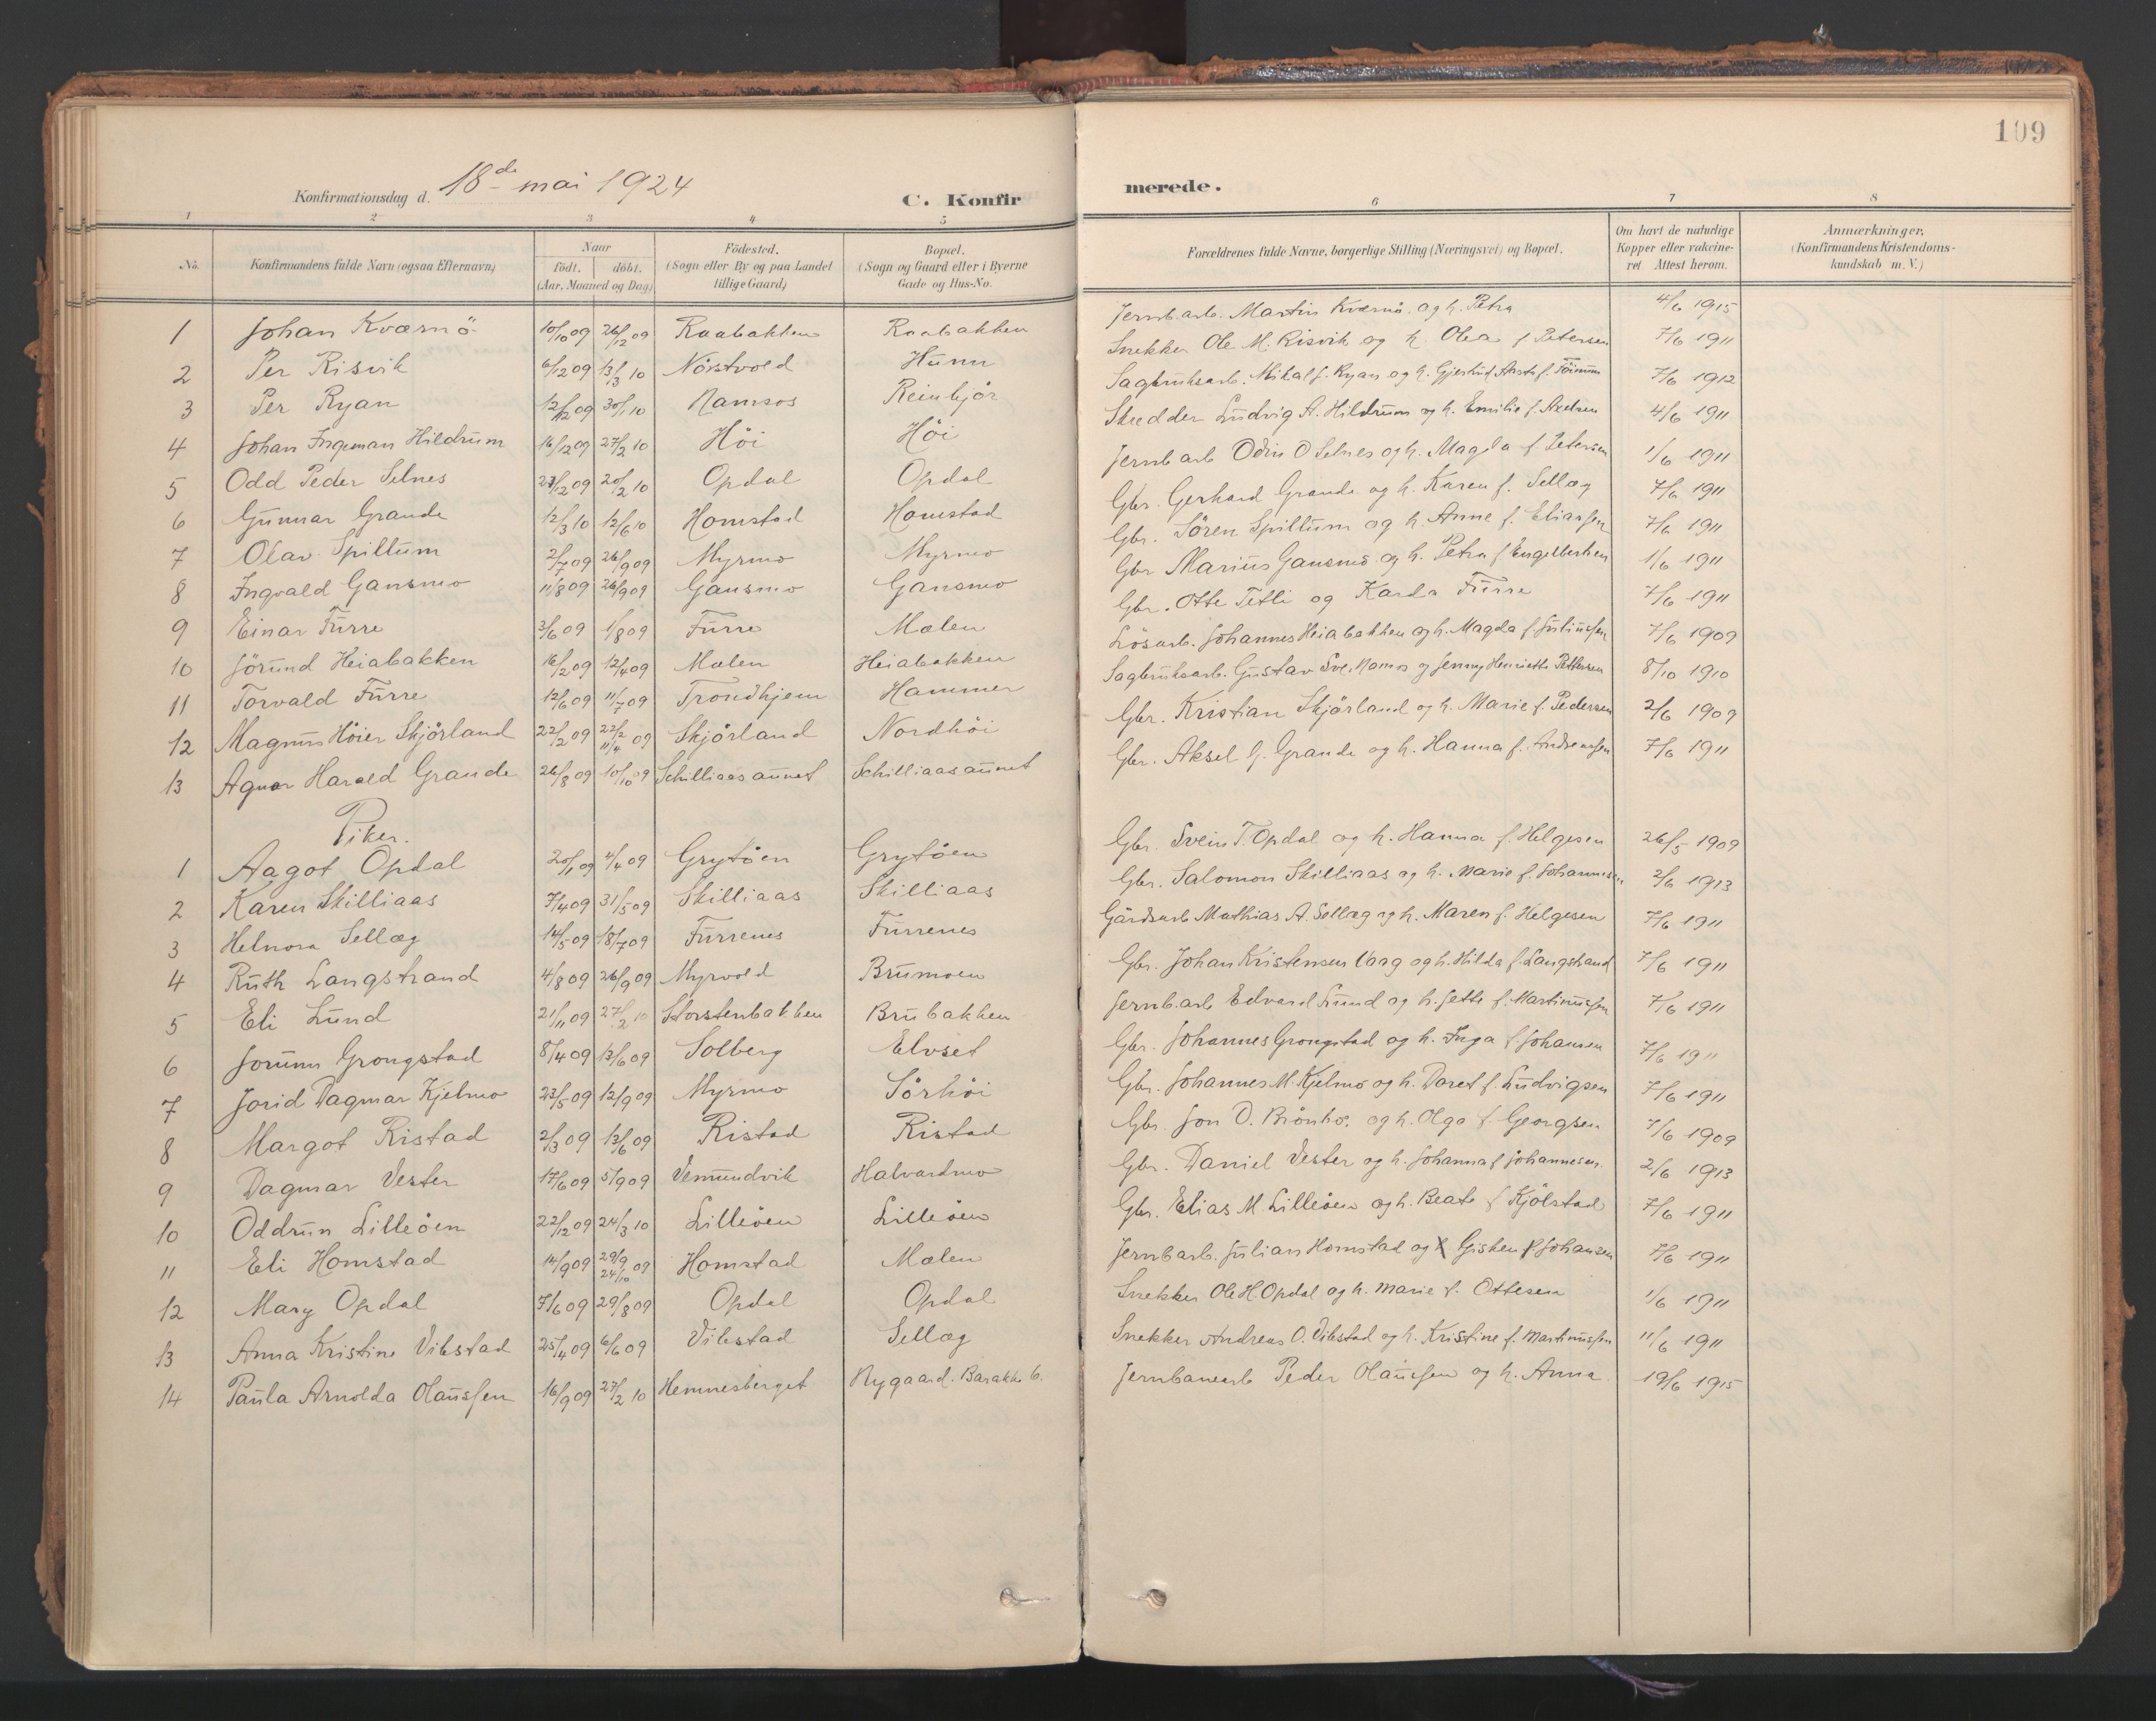 109
Konfirmationsdag d. 18de mai 1924 C. Konfir merede.
1 2 3 4 5 6 7 8
No. Konfirmandens fulde Navn (ogsaa Efternavn) Naar födt. döbt. (Aar, Maaned og Dag) Födested. (Sogn eller By og paa Landet tillige Gaard) Bopæl. (Sogn og Gaard eller i Byerne Gade og Hus-No. Forældrenes fulde Navne, borgerlige Stilling (Næringsvei) og Bopæl. Om havt de naturlige Kopper eller vakcineret Attest herom. Anmærkninger. (Konfirmandens Kristendomskundskab m. V.)
1 Johan Kværnö 10/10 09 26/12 09 Raabakken Raabakken Jernb.arb. Martin Kværnö og h. Petra 4/6 1915
2 Per Risvik 6/12 09 13/3 10 Nörstvold Hunn Snekker Ole M. Risvik og h. Olea f Petersen 7/6 1911
3 Per Ryan 12/12 09 30/1 10 Namsos Reinbjör Sagbruksarb. Mikal J. Ryan og h. Gjertrud f. 7/6 1912
4 Johan Ingeman Hildrum 16/12 09 27/2 10 Höi Höi Skredder Ludvig A. Hildrum og h. Emilie f. Axelsen 4/6 1911
5 Odd Peder Selnes 29/12 09 20/2 10 Opdal Opdal Jernb arb Odin O Selnes og h. Magda f Petersen 1/6 1911
6 Gunnar Grande 12/3 10 12/6 10 Homstad Homstad Gbr. Gerhard Grande og h. Karen f. Sellæg 7/6 1911
7 Olav Spillum 2/7 09 26/9 09 Myrmo Myrmo Gbr. Sören Spillum og h. Anne f. Eliassen 7/6 1911
8 Ingvald Gansmo 11/8 09 26/9 09 Gansmo Gansmo Gbr Marius Gansmo og h. Petra f Engelbertsen 1/6 1911
9 Einar Furre 3/6 09 1/8 09 Furre Mælen Gbr. Otte Tetli og Karda Furre 7/6 1911
10 Jörund Heiabakken 16/2 09 12/4 09 Mælen Heiabakken Lösarb. Johannes Heiabakken og h. Magda f. Juliussen 7/6 1909
11 Torvald Furre 12/6 09 11/7 09 Trondhjem Hammer Sagbruksarb. Gustav Sve, Namsos og Jenny Henriette Pettersen 8/10 1910
12 Magnus Höier Skjörland 22/2 09 22/2 11/4 09 Skjörland Nordhöi Gbr. Kristian Skjörland og h. Marie f. Pedersen 2/6 1909
13 Agnar Harald Grande 26/8 09 10/10 09 Schilliaasaunet Schilliaasaunet Gbr. Aksel G. Grande og h. Hanna f. Andreassen 7/6 1911
Piker.
1 Aagot Opdal 20/1 09 4/4 09 Grytöen Grytöen Gbr. Svein T. Opdal og h. Hanna f. Helgesen 26/5 1909
2 Karen Skilliaas 7/4 09 31/5 09 Skilliaas Skilliaas Gbr. Salomon Skilliaas og h. Marie f. Johannesen 2/6 1913
3 Helnora Sellæg 14/5 09 18/7 09 Furrenes Furrenes Gårdsarb Mathias A. Sellæg og h. Maren f. Helgesen 7/6 1911
4 Ruth Langstrand 4/8 09 26/9 09 Myrvold Brumoen Gbr. Johan Kristensen Vaag og h. Hilda f. Langstrand 7/6 1911
5 Eli Lund 21/11 09 27/2 10 Storstenbakken Brubakken Jernb.arb Edvard Lund og h. Jette f. Martinussen 7/6 1911
6 Jorunn Grongstad 8/4 09 13/6 09 Solberg Elvset Gbr. Johannes Grongstad og h. Inga f Johansen 7/6 1911
7 Jorid Dagmar Kjelmo 23/5 09 12/9 09 Myrmo Sörhöi Gbr. Johannes M. Kjelmo og h. Daret f. Ludvigsen 7/6 1911
8 Margot Ristad 2/3 09 13/6 09 Ristad Ristad Gbr. Jon O. og h. Olga f. Georgsen 7/6 1909
9 Dagmar Vester 17/6 09 5/9 09 Vemundvik Halvardmo Gbr. Daniel Vester og h. Johanna f Johannesen. 2/6 1913
10 Oddrun Lilleöen 22/12 09 24/3 10 Lilleöen Lilleöen Gbr. Elias M. Lilleöen og h. Beate f Kjölstad 7/6 1911
11 Eli Homstad 14/9 09 29/9 24/10 09 Homstad Mælen Jernb arb. Julian Homstad og Gisken f Johansen 7/6 1911
12 Mary Opdal 7/6 09 29/8 09 Opdal Opdal Snekker Ole H. Opdal og h. Marie f. Ottesen 1/6 1911
13 Anna Kristine Vibstad 25/4 09 6/6 09 Vibstad Sellæg Snekker Andreas O. Vibstad og h. Kristine f. Martinussen 11/6 1911
14 Paula Arnolda Olaussen 16/9 09 27/2 10 Hemnesberget Nygaard. Barakke 6. Jernbanearb Peder Olaussen og h. Anna. 19/6 1915